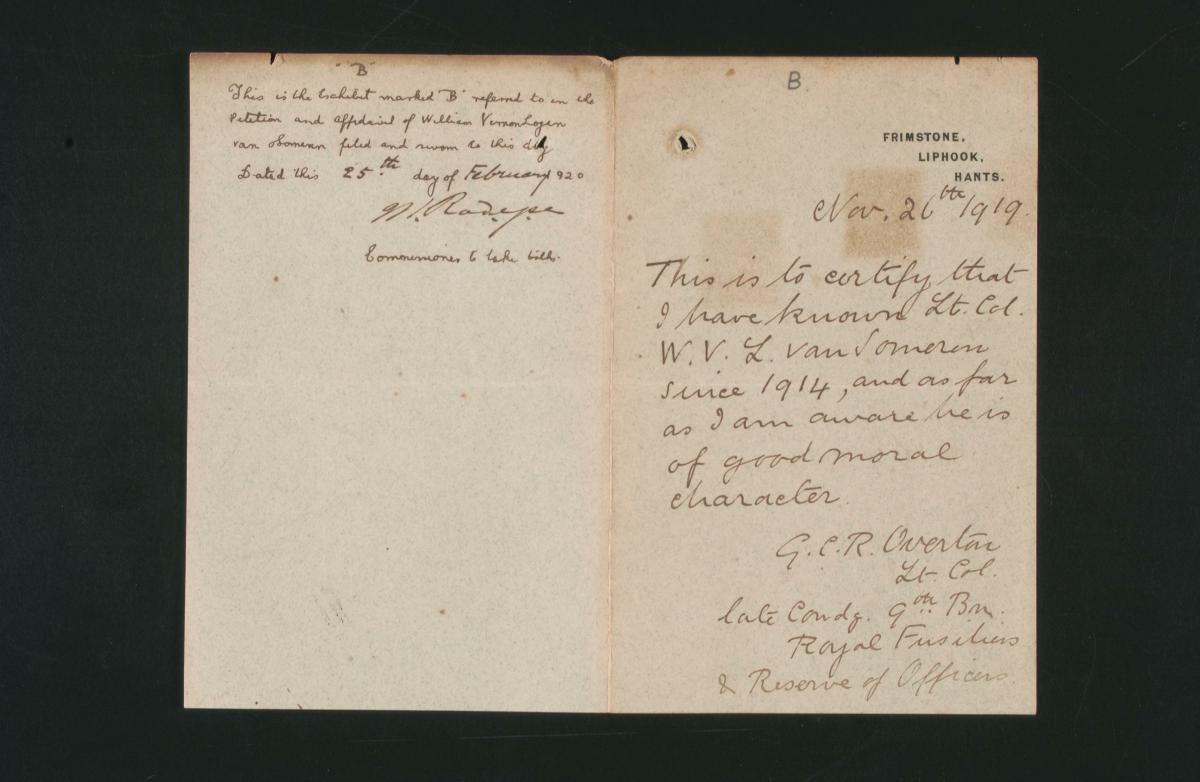 "B"
This is the Exhibit marked "B" referred to in the
Petition and affidavit of William Vernon Logan
van Someren filed and sworn to this day
Dated this 25th day of February 1920
Commissioner to take oaths.
B
FRIMSTONE,
LIPHOOK,
HANTS.
Nov. 26th 1919.
This is to certify that
I have known Lt. Col.
W. V. L. van Someren
since 1914, and as far
as I am aware he is
of good moral
character.
G.C.R. Overton
Lt. Col.
late Comdg. 9th Bn.
Royal Fusiliers
& Reserve of Officers.